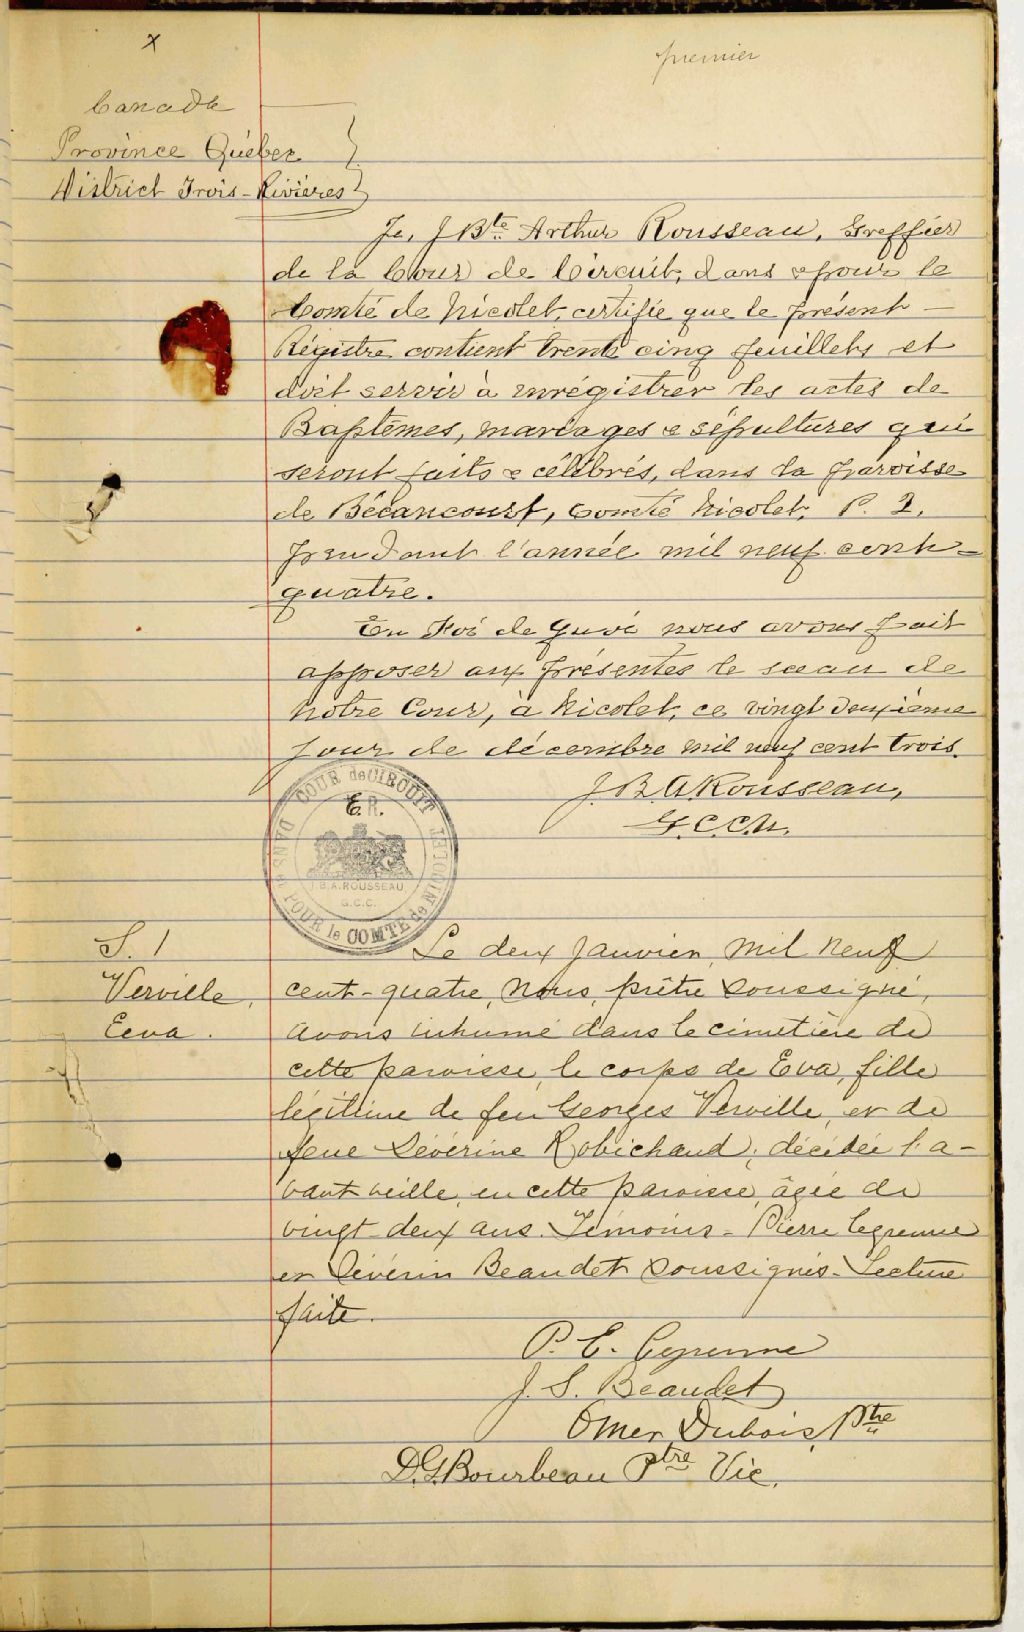 x
premier
Canada
Province Québec
District Trois-Rivières
Je, J Bte Arthur Rousseau, Greffier
de la Cour de Circuit, dans & pour le
Comté de Nicolet, certifie que le présent
Régistre contient trente cinq feuillets et
doit servir à enrégistrer les actes de
Baptêmes, mariages & sépultures qui
seront faits & célébrés, dans la paroisse
de Bécancourt, Comté Nicolet, P. Q.
pendant l'année mil neuf cent-
quatre.
En Foi de Quoi nous avons fait
apposer aux présentes le sceau de
notre Cour, à Nicolet, ce vingt deuxième
jour de décembre mil neuf cent trois.
J.B.A. Rousseau,
G.C.C.N.
COUR de CIRCUIT DANS & POUR le COMTÉ de NICOLET
E.R.
J.B.A. ROUSSEAU
G.C.C.
S. 1
Verville,
Eeva.
Le deux Janvier, mil neuf
cent-quatre, Nous, prêtre soussigné,
avons inhumé dans le cimetière de
cette paroisse, le corps de Eva, fille
légitime de feu Georges Verville, et de
feue Sévérine Robichaud, décédée l'a-
vant veille, en cette paroisse, âgée de
vingt-deux ans. Témoins - Pierre
et Sévérin Beaudet soussignés. Lecture
faite.
P. E.
J. S. Beaudet
Omer Dubois, Ptre
D.G. Bourbeau Ptre Vic.